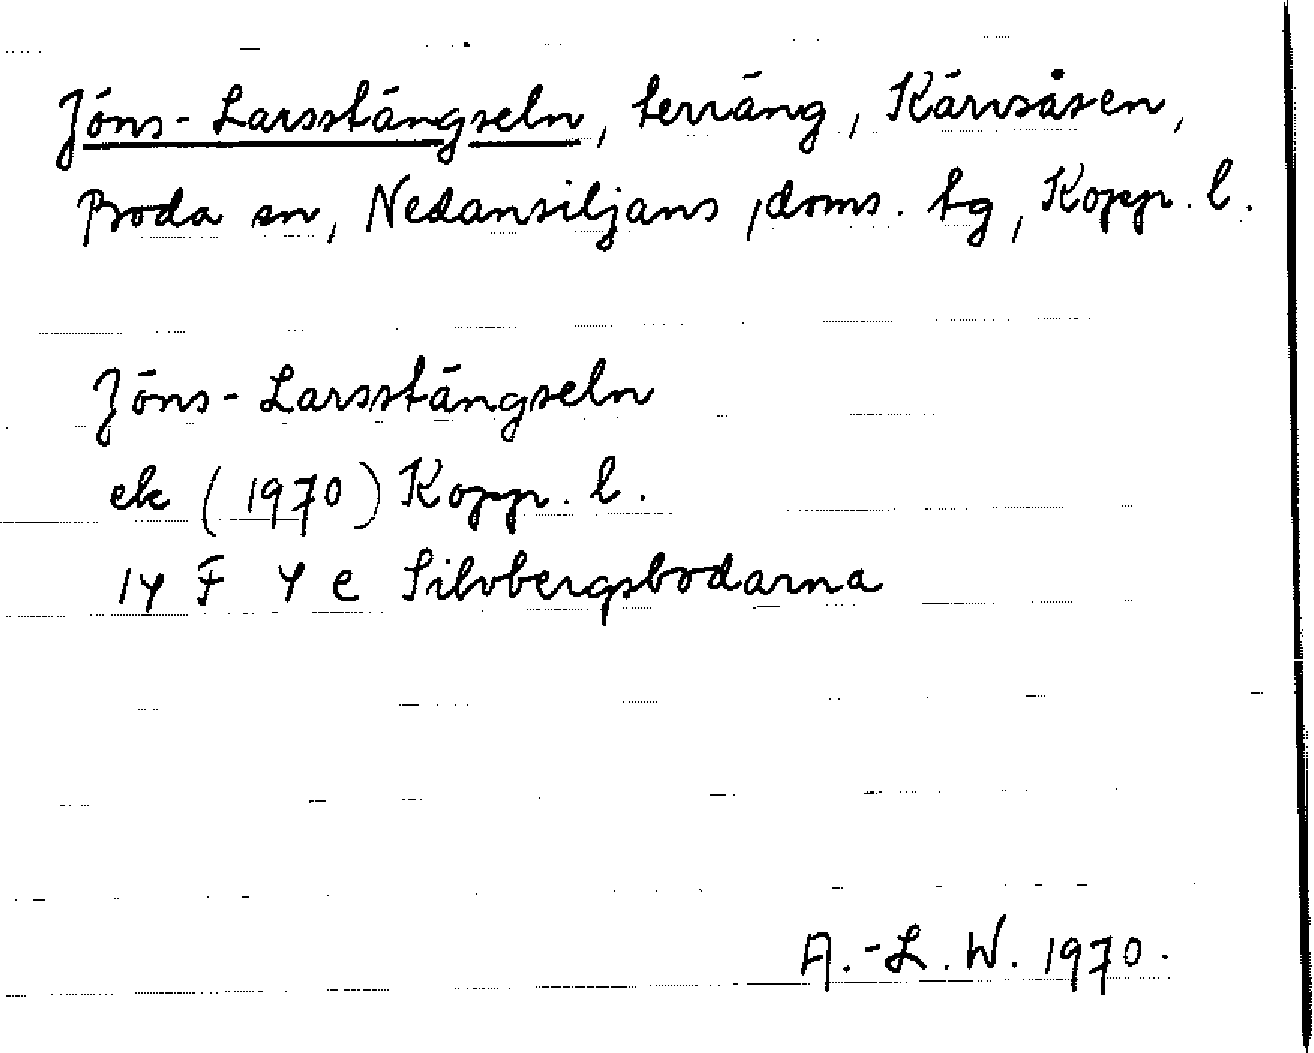 Jöns-Larsstängseln, terräng, Kärvsåsen,
Boda sn, Nedansiljans doms. tg, Kopp. l.
Jöns-Larsstängseln
ek (1970) Kopp. l.
14 F 4 e Silvbergsbodarna
A.-L. W. 1970.